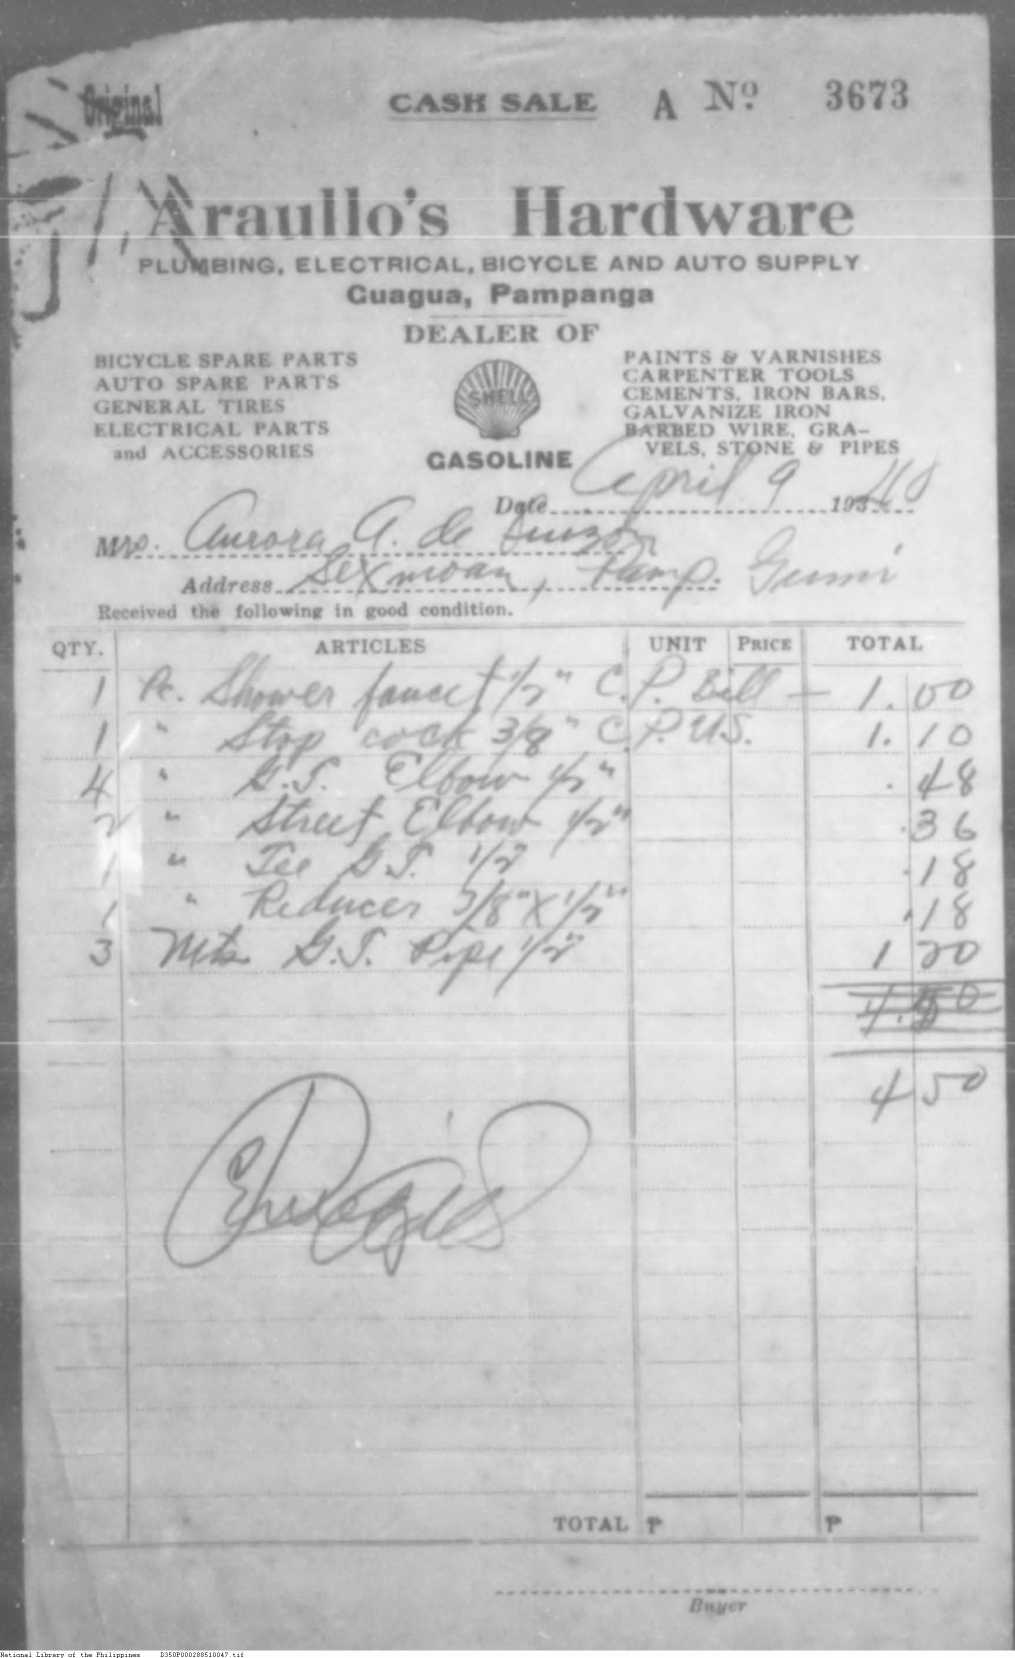 Original
CASH SALE A No 3673
Araullo's Hardware
PLUMBING, ELECTRICAL, BICYCLE AND AUTO SUPPLY
Guagua, Pampanga
DEALER OF
BICYCLE SPARE PARTS
AUTO SPARE PARTS
GENERAL TIRES
ELECTRICAL PARTS
and ACCESSORIES
SHELL
GASOLINE
PAINTS & VARNISHES
CARPENTER TOOLS
CEMENTS, IRON BARS,
GALVANIZE IRON
BARBED WIRE, GRA-
VELS, STONE & PIPES
Date April 9 1940
Mrs. Aurora A. de
Address Sexmoan, Pamp.
Received the following in good condition.
QTY. ARTICLES UNIT PRICE TOTAL
1 Pc. Shower faucet 1/2" C.P. Bill — 1.00
1 " Stop cock 3/8" C.P. U.S. 1.10
4 " G.I. Elbow 1/2" .48
2 " Street Elbow 1/2" .36
1 " Tee G.I. 1/2" .18
1 " Reducer 3/8" X 1/2" .18
3 Mts. G.I. Pipe 1/2" 1 20
4 50
TOTAL ₱ ₱
Buyer
National Library of the Philippines D350P000288510047.tif